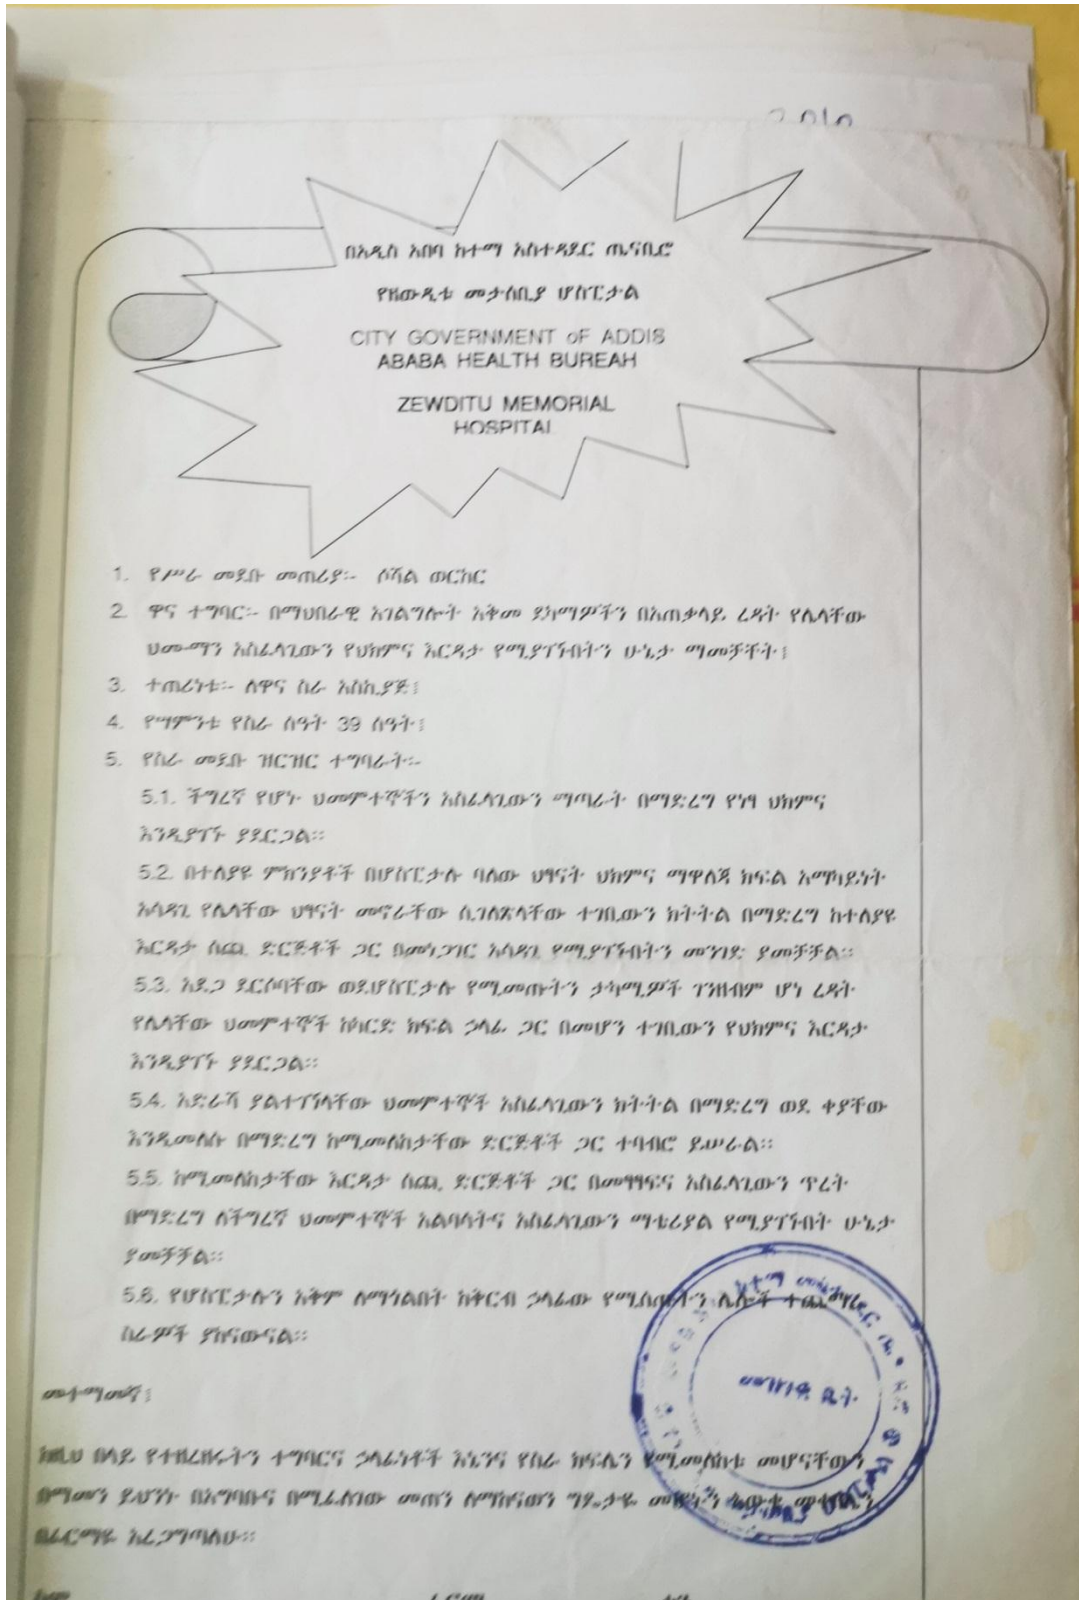 በአዲስ አበባ ከተማ አስተዳደር ጤናቢሮ
የዘውዲቱ መታሰቢያ ሆስፒታል
CITY GOVERNMENT oF ADDIS
ABABA HEALTH BUREAH
ZEWDITU MEMORIAL
HOSPITAL
1. የሥራ መደቡ መጠሪያ፡- ሶሻል ወርከር
2. ዋና ተግባር፡- በማህበራዊ አገልግሎት አቅመ ደካማዎችን በአጠቃላይ ረዳት የሌላቸው
ህሙማን አስፈላጊውን የህክምና እርዳታ የሚያገኙበትን ሁኔታ ማመቻቸት፤
3. ተጠሪነቱ፡- ለዋና ስራ አስኪያጅ፤
4. የሣምንቱ የስራ ሰዓት 39 ሰዓት፤
5. የስራ መደቡ ዝርዝር ተግባራት፡-
5.1. ችግረኛ የሆኑ ህመምተኞችን አስፈላጊውን ማጣራት በማድረግ የነፃ ህክምና
እንዲያገኙ ያደርጋል።
5.2. በተለያዩ ምክንያቶች በሆስፒታሉ ባለው ህፃናት ህክምና ማዋለጃ ክፍል አማካይነት
አሳዳጊ የሌላቸው ህፃናት መኖራቸው ሲገለጽላቸው ተገቢውን ክትትል በማድረግ ከተለያዩ
እርዳታ ሰጪ ድርጅቶች ጋር በመነጋገር አሳዳጊ የሚያገኙበትን መንገድ ያመቻቻል።
5.3. አደጋ ደርሶባቸው ወደሆስፒታሉ የሚመጡትን ታካሚዎች ገንዘብም ሆነ ረዳት
የሌላቸው ህመምተኞች ከካርድ ክፍል ኃላፊ ጋር በመሆን ተገቢውን የህክምና እርዳታ
እንዲያገኙ ያደርጋል።
5.4. አድራሻ ያልተገኘላቸው ህመምተኞች አስፈላጊውን ክትትል በማድረግ ወደ ቀያቸው
እንዲመለሱ በማድረግ ከሚመለከታቸው ድርጅቶች ጋር ተባብሮ ይሠራል።
5.5. ከሚመለከታቸው እርዳታ ሰጪ ድርጅቶች ጋር በመፃፃፍና አስፈላጊውን ጥረት
በማድረግ ለችግረኛ ህመምተኞች አልባሳትና አስፈላጊውን ማቴሪያል የሚያገኙበት ሁኔታ
ያመቻቻል።
5.6. የሆስፒታሉን አቅም ለማጎልበት ከቅርብ ኃላፊው የሚሰጡትን ሌሎች ተጨማሪ
ስራዎች ያከናውናል።
መተማመኛ፤
ከዚህ በላይ የተዘረዘሩትን ተግባርና ኃላፊነቶች እኔንና የስራ ክፍሌን የሚመለከቱ መሆናቸውን
በማመን ይህንኑ በአግባቡና በሚፈለገው መጠን ለማከናወን ግዴታዬ መሆኑን
በፊርማዬ አረጋግጣለሁ።
መዝገብ ቤት